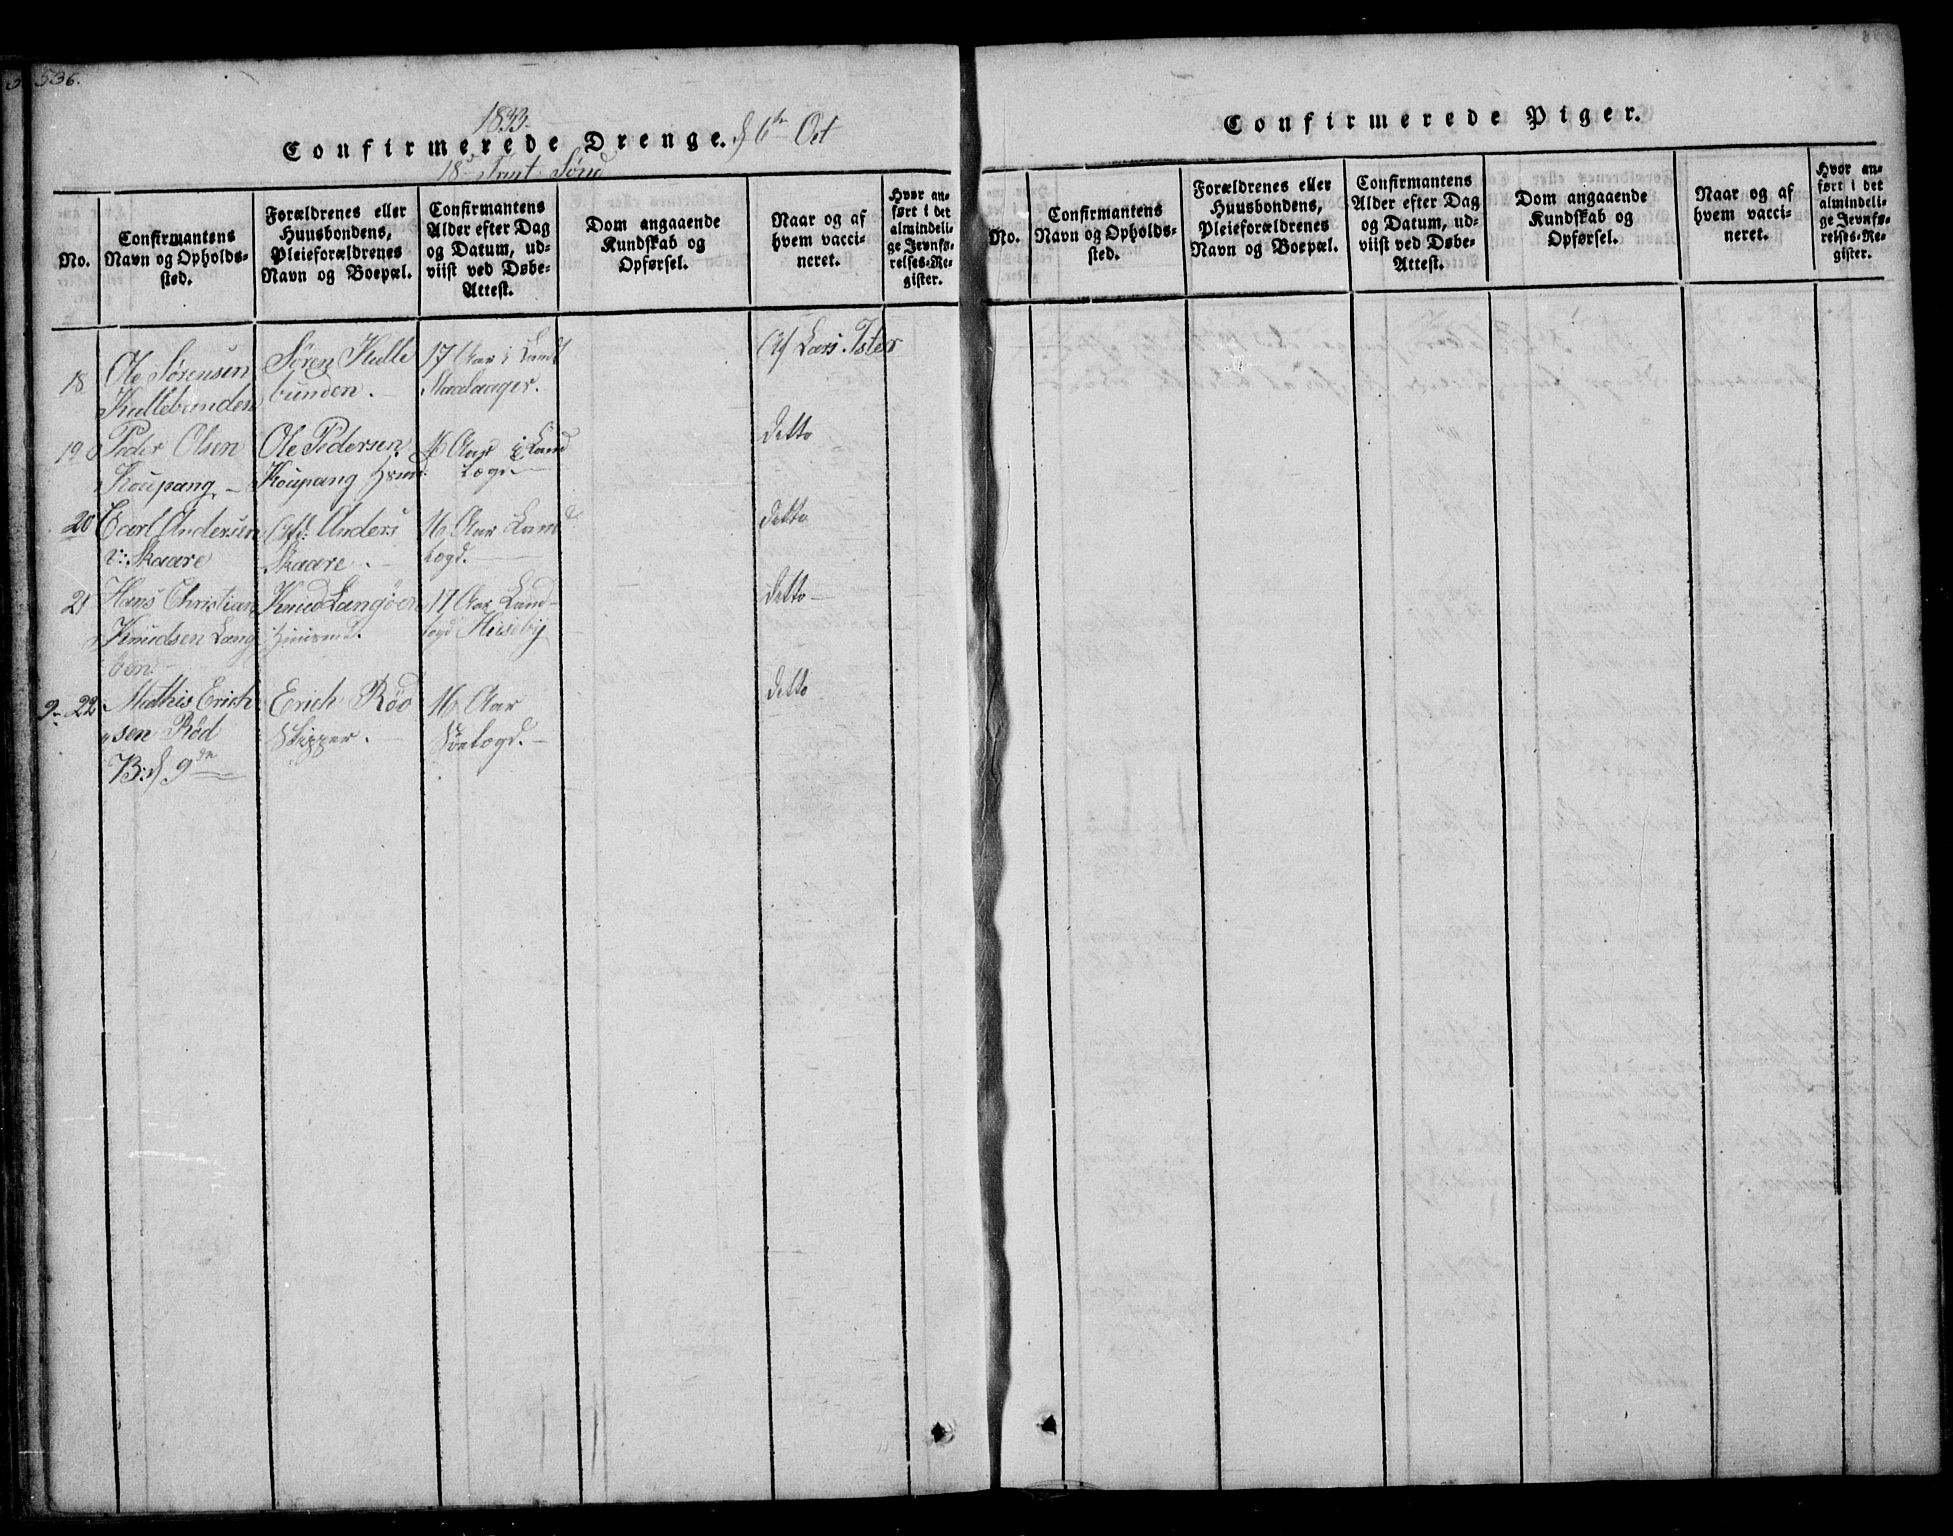 536.
1833.
Confirmerede Drenge. d 6te Oct
18de Trint Sønd
No.
Confirmantens
Navn og Opholds-
sted.
Forældrenes eller
Huusbondens,
Pleieforældrenes
Navn og Boepæl.
Confirmantens
Alder efter Dag
og Datum, ud-
viist ved Døbe-
Attest.
Dom angaaende
Kundskab og
Opførsel.
Naar og af
hvem vacci-
neret.
Hvor an-
ført i det
almindeli-
ge Jevnfø-
relses-Re-
gister.
18
Ole Sørensen
Kullebunden
Søren Kulle
bunden.
17 Aar i Land
Af Lars Ister
19
Peder Olsen
Koupang
Ole Pedersen
Koupang
16 Aar i Land
Lægd
detto
20
Carl Andersen
v: Skaare
Anders
Skaare.
16 Aar Land
Lægd.
detto
21
Hans Christian
Knudsen Lang
öen
Knud Langöen
Huusmd.
17 Aar Land-
Lægd Huseby
detto
22
Mathis Erich
sen Röd
B: d 9de
Erich Röd
Skipper.
16 Aar
Sölægd.
detto
Confirmerede Piger.
No.
Confirmantens
Navn og Opholds-
sted.
Forældrenes eller
Huusbondens,
Pleieforældrenes
Navn og Boepæl.
Confirmantens
Alder efter Dag
og Datum, ud-
viist ved Døbe-
Attest.
Dom angaaende
Kundskab og
Opførsel.
Naar og af
hvem vacci-
neret.
Hvor an-
ført i det
almindeli-
ge Jevnfø-
relses-Re-
gister.